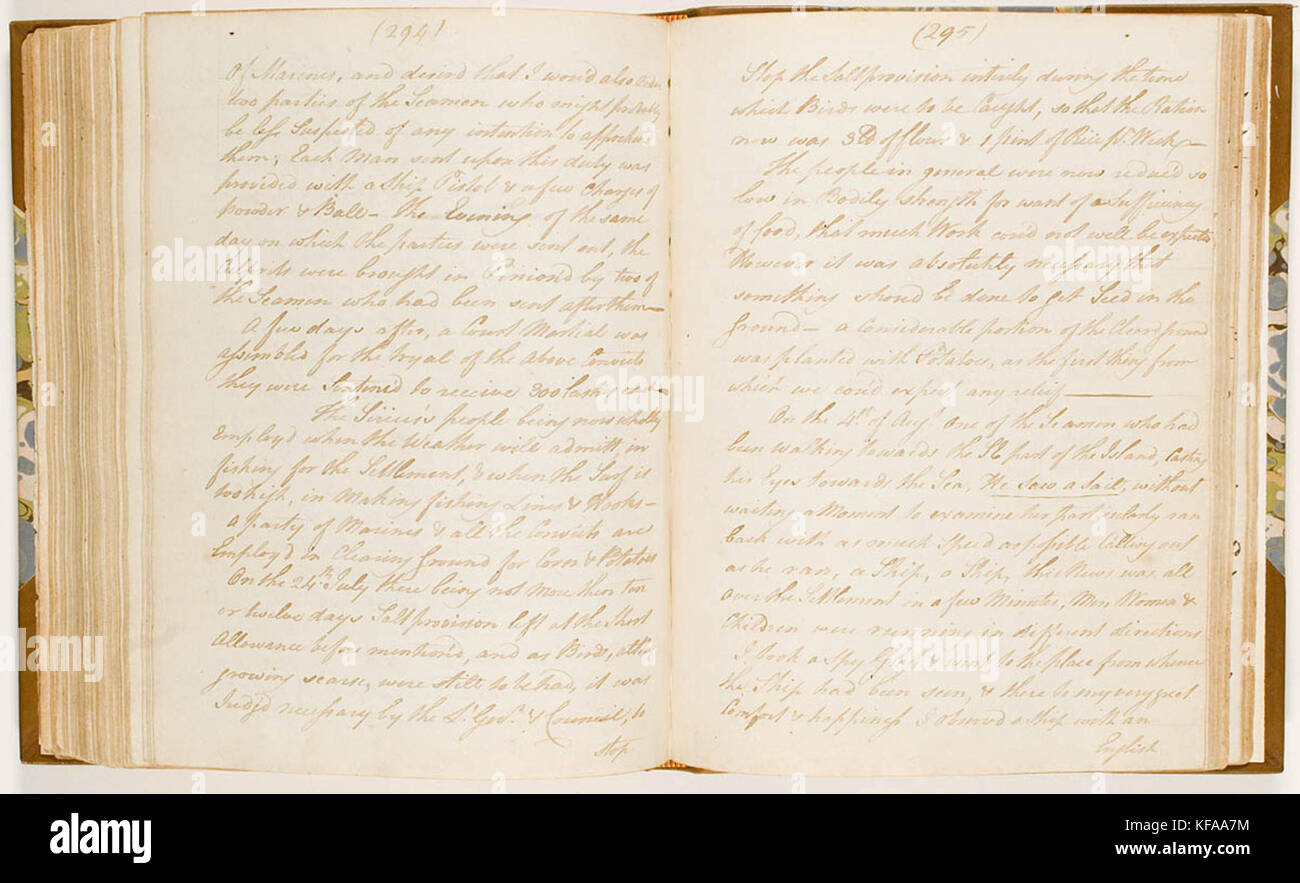 (294)
of Marines, and desired that I would also order
two parties of the Seamen who might probably
be less Suspected of any intention to approach
them; Each Man sent upon this duty was
provided with a Ship Pistol & a few Charges of
powder & Ball – the Evening of the same
day on which the parties were sent out, the
Culprits were brought in Pinion'd by two of
the Seamen who had been sent after them –
A few days after, a Court Martial was
assembled for the tryal of the above Convicts
they were Sentenced to receive 300 lashes each –
The Sirius's people being now wholly
Employ'd when the Weather will admitt, in
fishing for the Settlement, & when the Surf is
too high, in Making fishing Lines & Hooks –
a party of Marines & all the Convicts are
Employ'd in Clearing Ground for Corn & Potatoes
On the 24th July there being not More then ten
or twelve days Salt provision left at the Short
Allowance before mention'd, and as Birds, altho
growing scarse, were still to be had, it was
Judg'd necessary by the Lt. Govr. & Council, to
Stop
(295)
Stop the Salt provision intirely during the time
which Birds were to be Caught, so that the Ration
now was 3lb of flour & 1 pint of Rice Pr. Week –
The people in general were now reduced so
low in Bodily strength for want of a Sufficiency
of food, that much Work could not well be expected
However it was absolutely necessary that
something should be done to get Seed in the
Ground – a Considerable portion of the Clear'd ground
was planted with Potatoes, as the first thing from
which we could expect any relief –
On the 4th of Augt one of the Seamen who had
been walking towards the So part of the Island, Casting
his Eyes towards the Sea, He Saw a Sail, without
waiting a Moment to examine her particularly ran
back with as much Speed as possible Calling out
as he ran, a Ship, a Ship, this News was all
over the Settlement in a few Minutes, Men Women &
Children were running in different directions
I took a Spy Glass & went to the place from whence
the Ship had been seen, & there to my very great
Comfort & happiness I observed a Ship with an
English
alamy
a
alamy
a
alamy
Image ID: KFAA7M
www.alamy.com